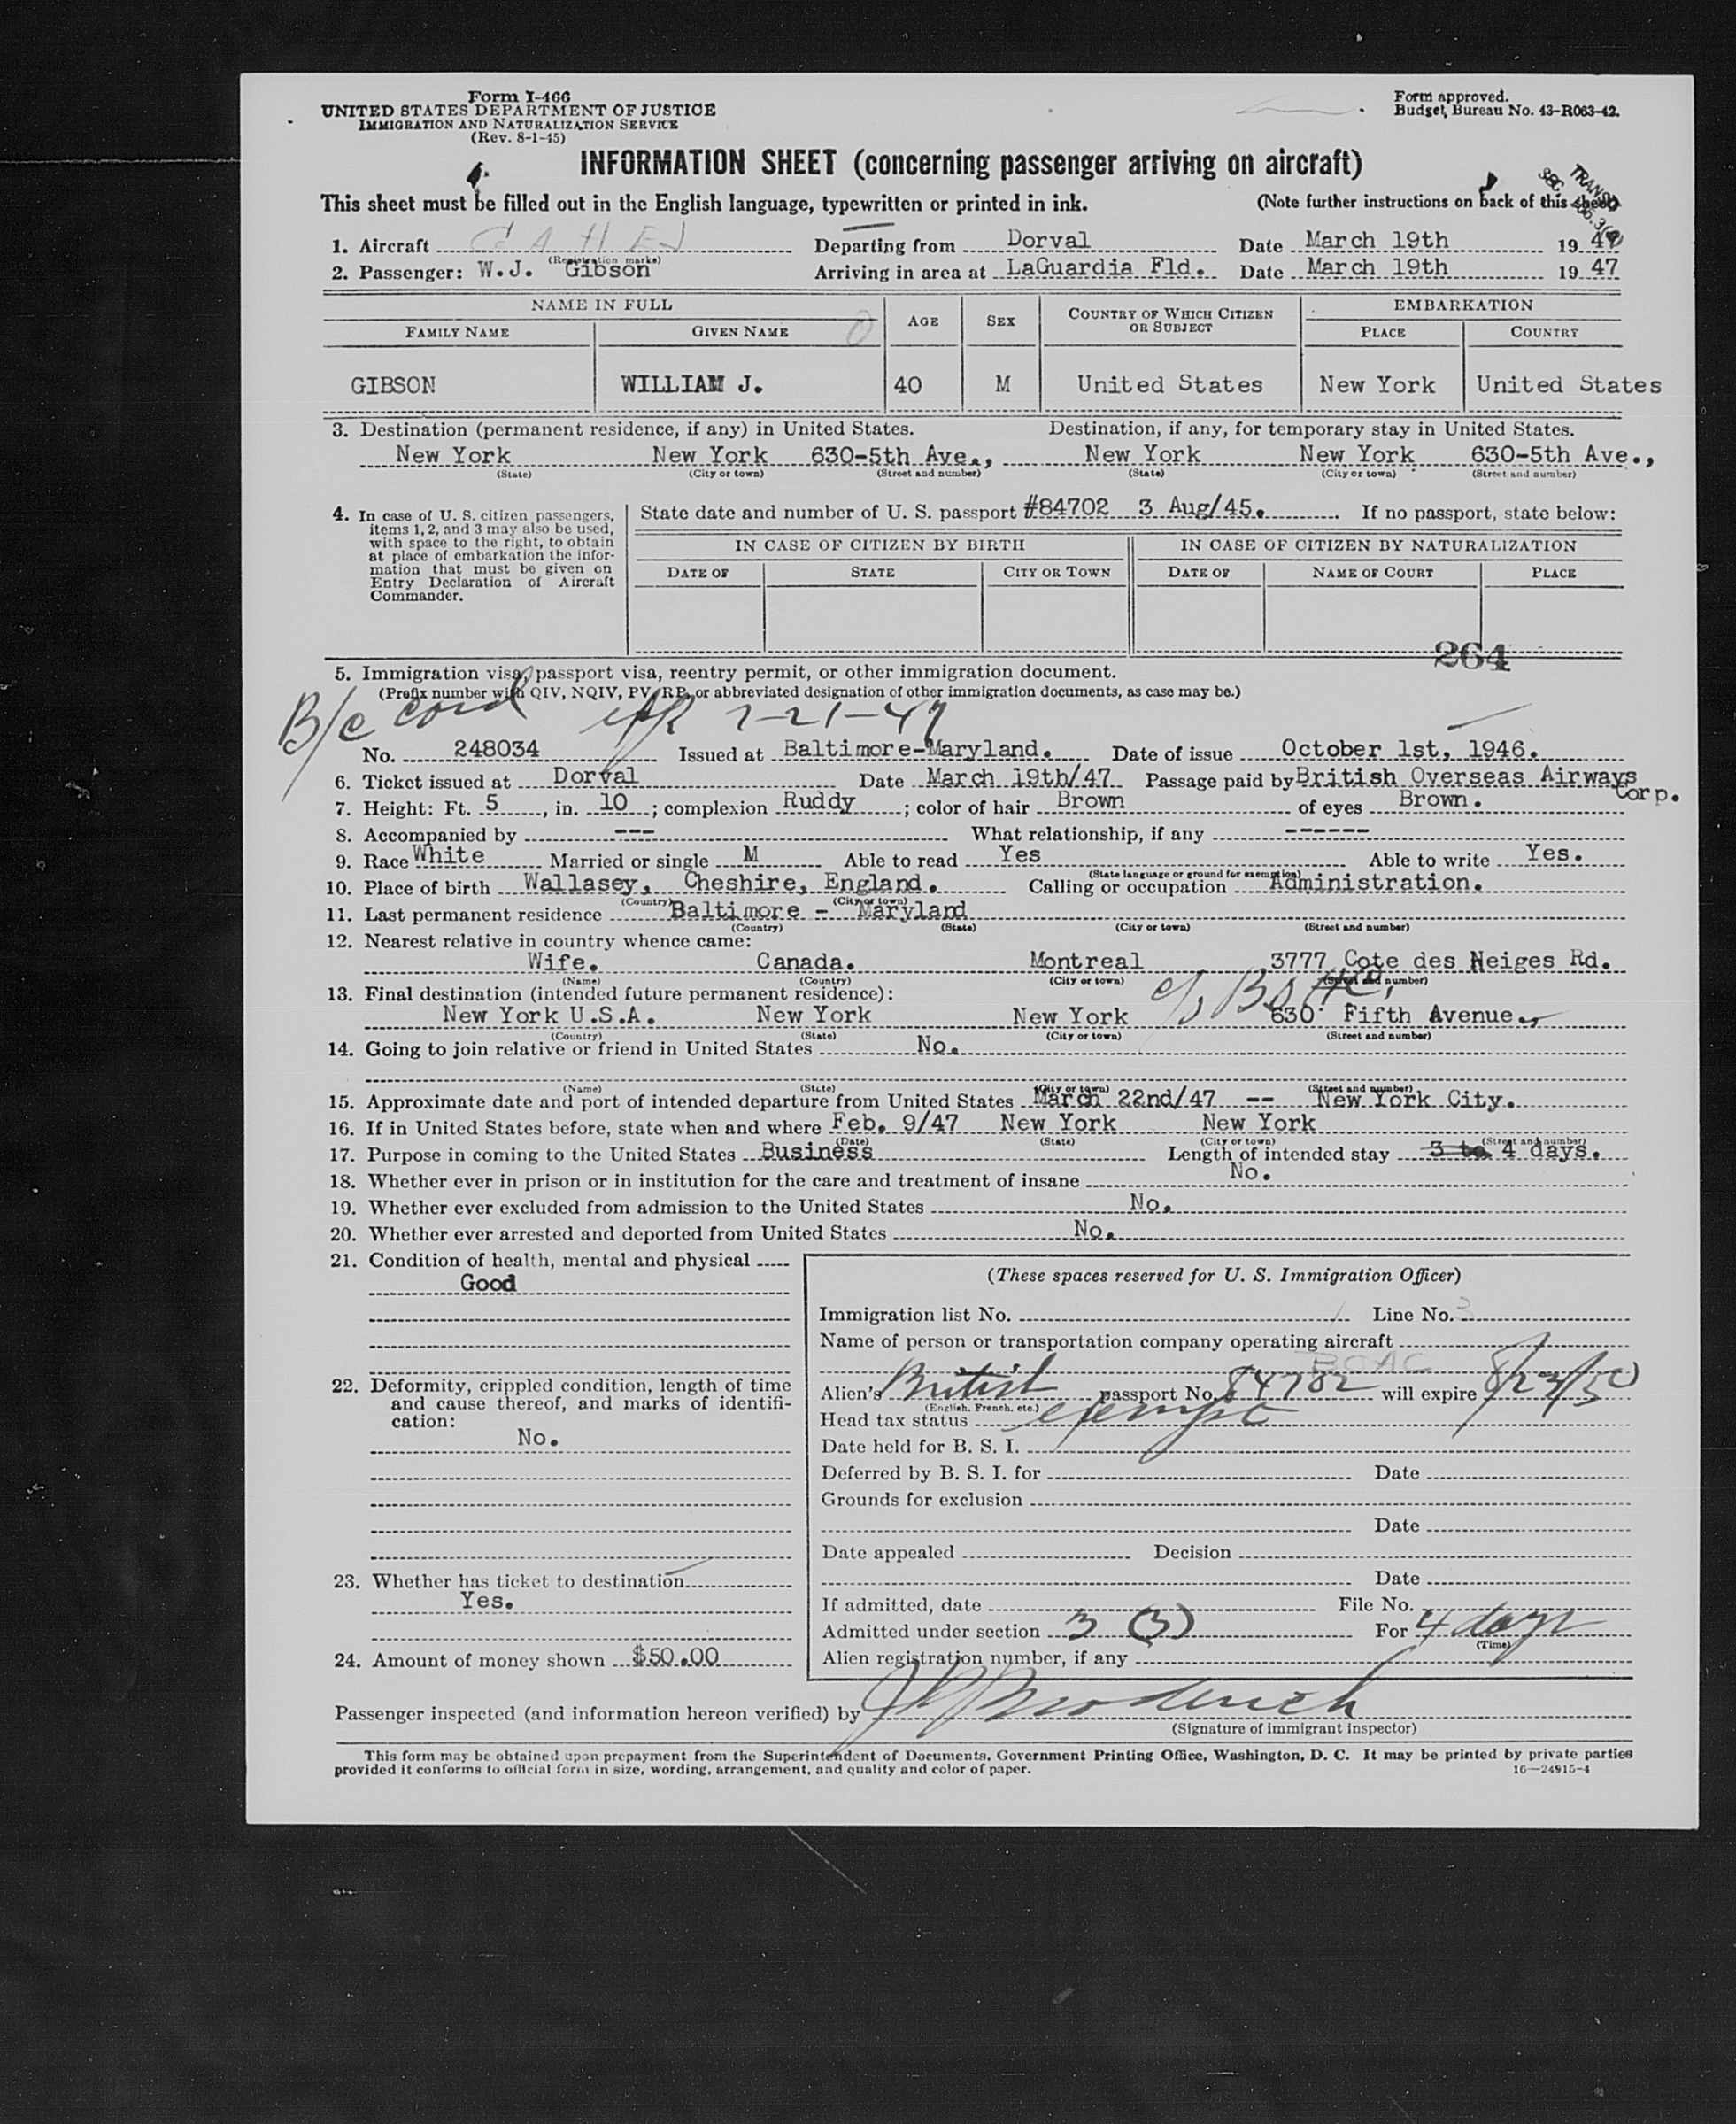 Form I-466
UNITED STATES DEPARTMENT OF JUSTICE
IMMIGRATION AND NATURALIZATION SERVICE
(Rev. 8-1-45)
Form approved.
Budget Bureau No. 43-R063-42.
INFORMATION SHEET (concerning passenger arriving on aircraft)
This sheet must be filled out in the English language, typewritten or printed in ink. (Note further instructions on back of this sheet)
SEC. TRANSIT
1. Aircraft Departing from Dorval Date March 19th 19 47
(Registration marks)
2. Passenger: W.J. Gibson Arriving in area at LaGuardia Fld. Date March 19th 19 47
NAME IN FULL AGE SEX COUNTRY OF WHICH CITIZEN OR SUBJECT EMBARKATION
FAMILY NAME GIVEN NAME PLACE COUNTRY
GIBSON WILLIAM J. 40 M United States New York United States
3. Destination (permanent residence, if any) in United States. Destination, if any, for temporary stay in United States.
New York New York 630-5th Ave., New York New York 630-5th Ave.,
(State) (City or town) (Street and number) (State) (City or town) (Street and number)
4. In case of U. S. citizen passengers, items 1, 2, and 3 may also be used, with space to the right, to obtain at place of embarkation the information that must be given on Entry Declaration of Aircraft Commander.
State date and number of U. S. passport #84702 3 Aug/45. If no passport, state below:
IN CASE OF CITIZEN BY BIRTH IN CASE OF CITIZEN BY NATURALIZATION
DATE OF STATE CITY OR TOWN DATE OF NAME OF COURT PLACE
264
5. Immigration visa, passport visa, reentry permit, or other immigration document.
(Prefix number with QIV, NQIV, PV, RP, or abbreviated designation of other immigration documents, as case may be.)
B/c card 7-21-47
No. 248034 Issued at Baltimore-Maryland. Date of issue October 1st, 1946.
6. Ticket issued at Dorval Date March 19th/47 Passage paid by British Overseas Airways Corp.
7. Height: Ft. 5, in. 10; complexion Ruddy; color of hair Brown of eyes Brown.
8. Accompanied by --- What relationship, if any ------
9. Race White Married or single M Able to read Yes Able to write Yes.
(State language or ground for exemption)
10. Place of birth Wallasey, Cheshire, England. Calling or occupation Administration.
(Country) (City or town)
11. Last permanent residence Baltimore - Maryland
(Country) (State) (City or town) (Street and number)
12. Nearest relative in country whence came:
Wife. Canada. Montreal 3777 Cote des Neiges Rd.
(Name) (Country) (City or town) (Street and number)
13. Final destination (intended future permanent residence):
New York U.S.A. New York New York 630 Fifth Avenue.,
(Country) (State) (City or town) (Street and number)
14. Going to join relative or friend in United States No.
(Name) (State) (City or town) (Street and number)
15. Approximate date and port of intended departure from United States March 22nd/47 -- New York City.
16. If in United States before, state when and where Feb. 9/47 New York New York
(Date) (State) (City or town) (Street and number)
17. Purpose in coming to the United States Business Length of intended stay 3 to 4 days.
18. Whether ever in prison or in institution for the care and treatment of insane No.
19. Whether ever excluded from admission to the United States No.
20. Whether ever arrested and deported from United States No.
21. Condition of health, mental and physical
Good
22. Deformity, crippled condition, length of time and cause thereof, and marks of identification:
No.
23. Whether has ticket to destination
Yes.
24. Amount of money shown $50.00
(These spaces reserved for U. S. Immigration Officer)
Immigration list No. Line No. 3
Name of person or transportation company operating aircraft
BOAC
Alien's British passport No. 84702 will expire 8/23/50
(English, French, etc.)
Head tax status exempt
Date held for B. S. I.
Deferred by B. S. I. for Date
Grounds for exclusion
Date
Date appealed Decision
Date
If admitted, date File No.
Admitted under section 3 (3) For 4 days
(Time)
Alien registration number, if any
Passenger inspected (and information hereon verified) by
(Signature of immigrant inspector)
This form may be obtained upon prepayment from the Superintendent of Documents, Government Printing Office, Washington, D. C. It may be printed by private parties
provided it conforms to official form in size, wording, arrangement, and quality and color of paper.
16—24915-4